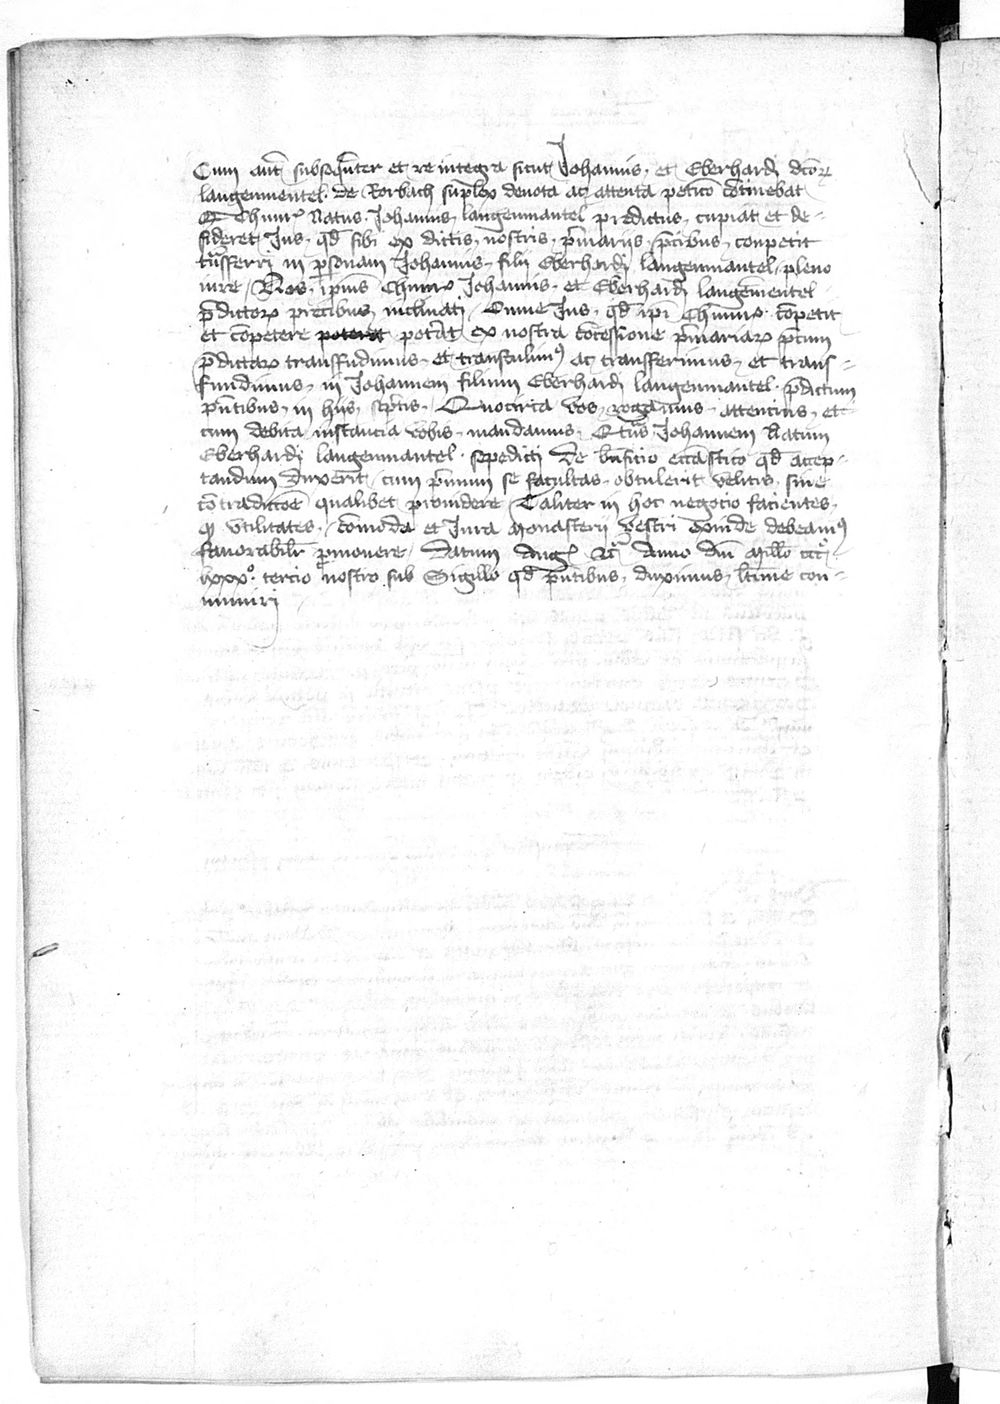 Cum aut̄ subseqn̄ter et re integra sicut Johannis, et Eberhardj dc̄oꝝ
langenmentel · de Rorbach supplex deuota ac attenta petic̄o c̄otinebat
Q Chunr̄ Natus Johannis, langenmantel predictus, cupiat et de-
sideret Jus, qd̄ sibi ex dictis, nostris, p̄mariis, p̄cibus, conpetit
tn̄sferri in p̄sonam Johannis, filij Eberhardj langenmantel, pleno
iure / Nos, ip̄ius Chunr̄, Johannis, et Eberhardj langēmentel
p̄dictoꝝ precibus, inclinatj, Omne Jus, qd̄ ip̄i Chunr̄, c̄opetit
et c̄opetere poterat pot̄at, ex nostra c̄ocessione p̄mariaꝝ p̄cum
p̄dictaꝝ transfudimus, et transtulim9 ac transferimus, et trans-
fundimus, in Johannem filium Eberhardj langenmantel · p̄dictum
p̄ntibus, in hijs, sc̄ptis, Quocirca vos, rogamus, attencius, et
cum debita instancia vobis, mandamus, Johannem Natum
Eberhardj langenmantel · sepedictj de b̄nficio ecc̄astico qd̄ accep-
tandum duxerit, cum p̄mum se facultas, obtulerit velitis, sine
c̄otradicc̄oe qualibet prouidere / Taliter in hoc negocio facientes,
ꝙ vtilitates, c̄omoda et Jura Monasterij vestri exinde debeam9
fauorabilit̄ p̄mouere / Datum Aug Anno dn̄i Mill̄o ccc
lxxxo. tercio nostro sub Sigillo qd̄ p̄ntibus, duximus, con-
muniri